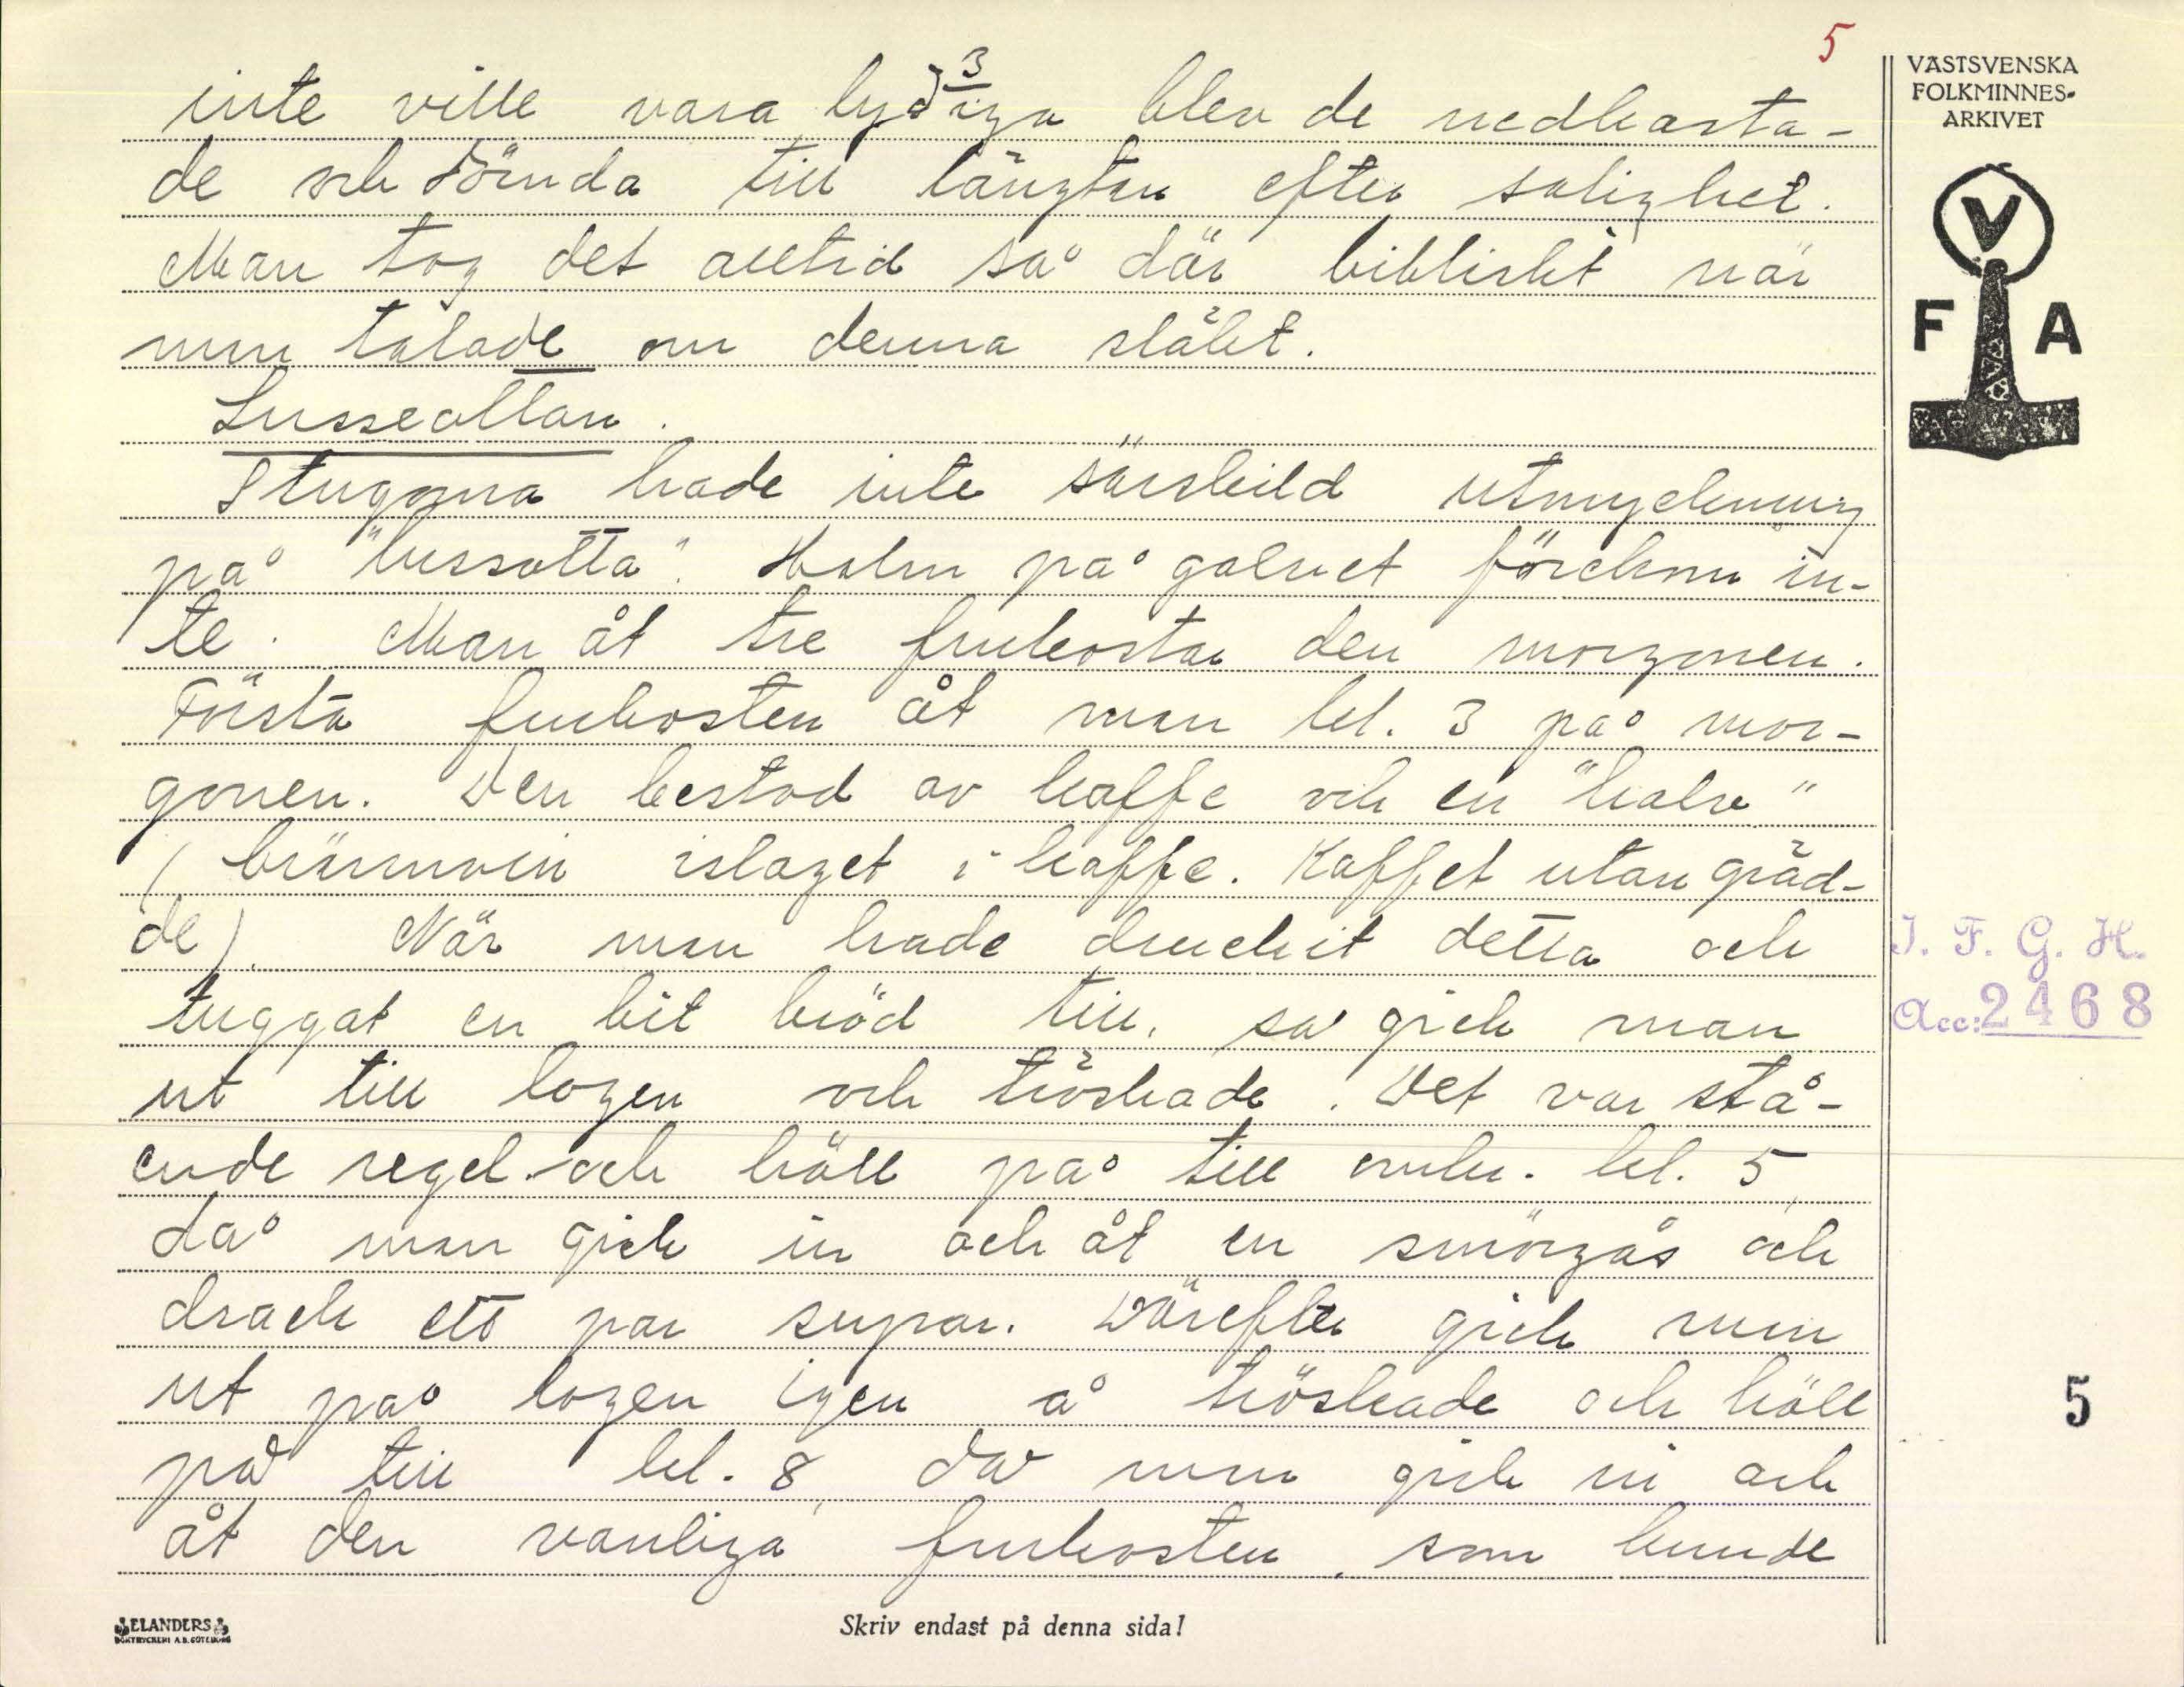 5
VÄSTSVENSKA
FOLKMINNES-
ARKIVET
F V A
3
inte ville vara lydiga blev de nedkasta-
de och dömda till längtan efter salighet.
Man tog det alltid så där bibliskt när
man talade om denna släkt.
Lusseottan.
Stugorna hade inte särskild utsmyckning
på "lussotta". Halm på golvet förekom in-
te. Man åt tre frukostar den morgonen.
Första frukosten åt man kl. 3 på mor-
gonen. Den bestod av kaffe och en "halv"
(brännvin islaget i kaffe. Kaffet utan gräd-
de). När man hade druckit detta och
tuggat en bit bröd till, så gick man
ut till logen och tröskade. Det var stå-
ende regel och höll på till omkr. kl. 5,
då man gick in och åt en smörgås och
drack ett par supar. Därefter gick man
ut på logen igen å tröskade och höll
på till kl. 8, då man gick in och
åt den vanliga frukosten, som kunde
I. F. G. H.
Acc: 2468
5
ELANDERS
BOKTRYCKERI A.B. GÖTEBORG
Skriv endast på denna sida!